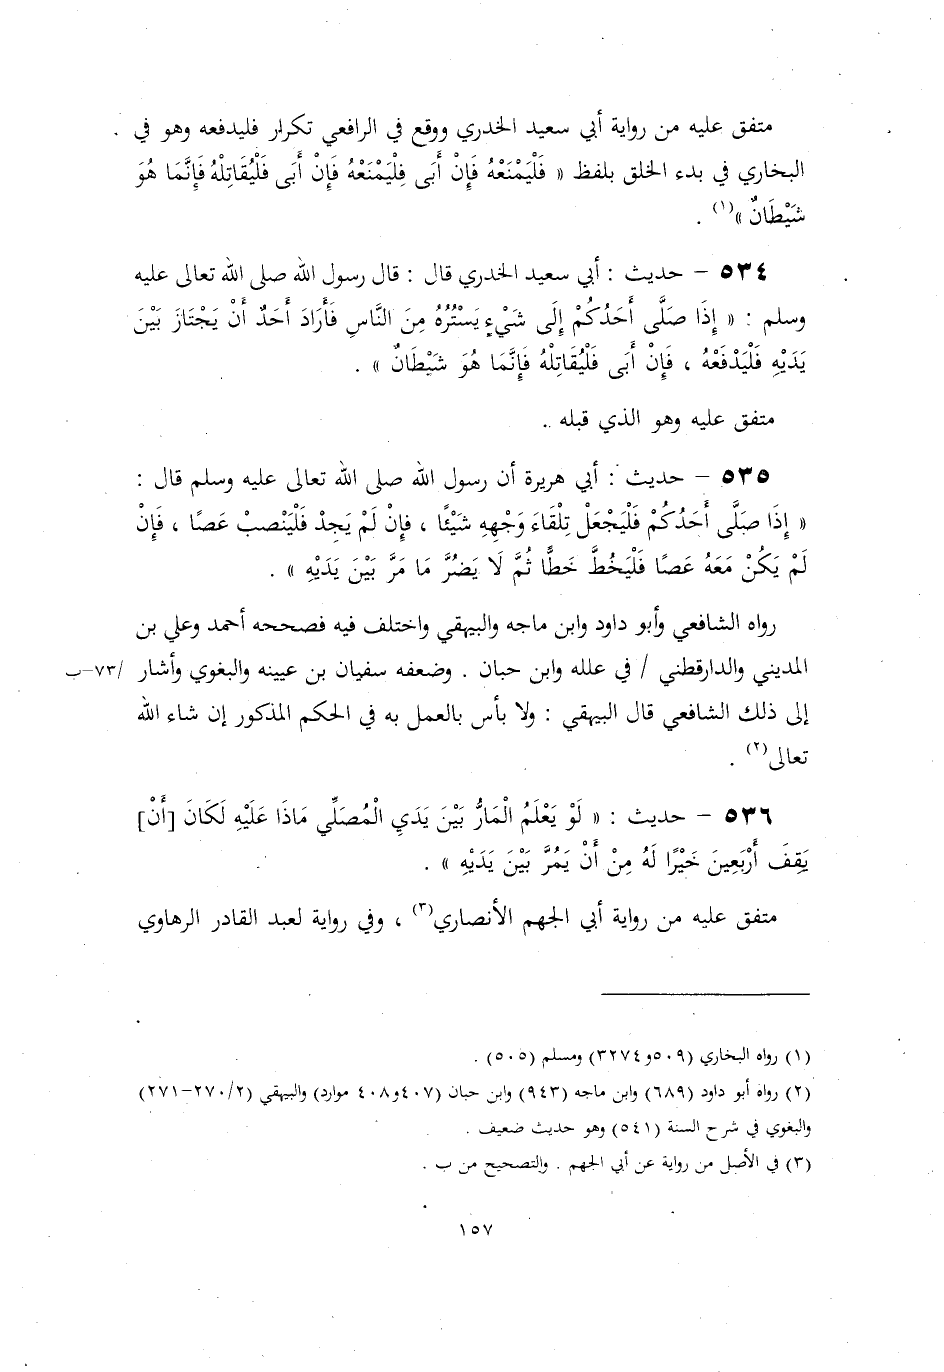 متفق عليه من رواية أبي سعيد الخدري ووقع في الرافعي تكرار فليدفعه وهو في
البخاري في بدء الخلق بلفظ « فَلْيَمْنَعْهُ فَإِنْ أَبَى فِلْيَمْنَعْهُ فَإِنْ أَبَى فَلْيُقَاتِلْهُ فَإِنَّمَا هُوَ
شَيْطَانٌ »(١) .
٥٣٤ – حديث : أبي سعيد الخدري قال : قال رسول الله صلى الله تعالى عليه
وسلم : « إِذَا صَلَّى أَحَدُكُمْ إِلَى شَيْءٍ يَسْتُرُهُ مِنَ النَّاسِ فَأَرَادَ أَحَدٌ أَنْ يَجْتَازَ بَيْنَ
يَدَيْهِ فَلْيَدْفَعْهُ ، فَإِنْ أَبَى فَلْيُقَاتِلْهُ فَإِنَّمَا هُوَ شَيْطَانٌ » .
متفق عليه وهو الذي قبله .
٥٣٥ – حديث : أبي هريرة أن رسول الله صلى الله تعالى عليه وسلم قال :
« إِذَا صَلَّى أَحَدُكُمْ فَلْيَجْعَلْ تِلْقَاءَ وَجْهِهِ شَيْئًا ، فإِنْ لَمْ يَجِدْ فَلْيَنْصِبْ عَصًا ، فَإِنْ
لَمْ يَكُنْ مَعَهُ عَصًا فَلْيَخُطَّ خَطًّا ثُمَّ لَا يَضُرُّ مَا مَرَّ بَيْنَ يَدَيْهِ » .
رواه الشافعي وأبو داود وابن ماجه والبيهقي واختلف فيه فصححه أحمد وعلي بن
المديني والدارقطني / في علله وابن حبان . وضعفه سفيان بن عيينه والبغوي وأشار /٧٣–ب
إلى ذلك الشافعي قال البيهقي : ولا بأس بالعمل به في الحكم المذكور إن شاء الله
تعالى(٢) .
٥٣٦ – حديث : « لَوْ يَعْلَمُ الْمَارُّ بَيْنَ يَدَيِ الْمُصَلِّي مَاذَا عَلَيْهِ لَكَانَ [أَنْ]
يَقِفَ أَرْبَعِينَ خَيْرًا لَهُ مِنْ أَنْ يَمُرَّ بَيْنَ يَدَيْهِ » .
متفق عليه من رواية أبي الجهم الأنصاري(٣) ، وفي رواية لعبد القادر الرهاوي
(١) رواه البخاري (٥٠٩ و٣٢٧٤) ومسلم (٥٠٥) .
(٢) رواه أبو داود (٦٨٩) وابن ماجه (٩٤٣) وابن حبان (٤٠٧ و٤٠٨ موارد) والبيهقي (٢/ ٢٧٠–٢٧١)
والبغوي في شرح السنة (٥٤١) وهو حديث ضعيف .
(٣) في الأصل من رواية عن أبي الجهم . والتصحيح من ب .
١٥٧